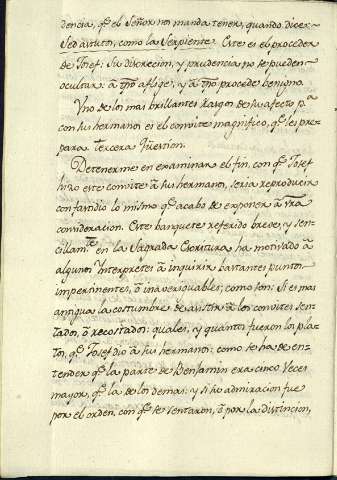 dencia, qͤ el Señor nos manda tener, quando dice:
Sed astutos, como la Serpiente. Este es el proceder
de Josef: Su discrecion, y prudencia no se pueden
ocultar: à tpõ aflige, y à tpõ procede benigno.
Uno de los mas brillantes rasgos de su afecto pᵃ
con sus hermanos es el convite magnifico, qͤ les pre-
para Tercera Qüestion.
Detenerme en examinar el fin, con qͤ Josef
hizo este convite à sus hermanos, seria reproducir
con fastidio lo mismo qͤ acabo de exponer à vr̃a
consideracion. Este banquete referido breve, y sen-
cillamᵗᵉ en la Sagrada Escritura ha motivado à
algunos Interpretes à inquirir bastantes puntos
impertinentes, ò inaveriguables; como son: Si es mas
antigua la costumbre de asistir à los convites sen-
tados, ò recostados: quales, y quantos fueron los pla-
tos, qͤ Josef dio à sus hermanos: como se ha de en-
tender qͤ la parte de Benjamin era cinco veces
mayor, qͤ la de los demas: y si su admiracion fue
por el orden, con qͤ se sentaron, ò por la distincion,